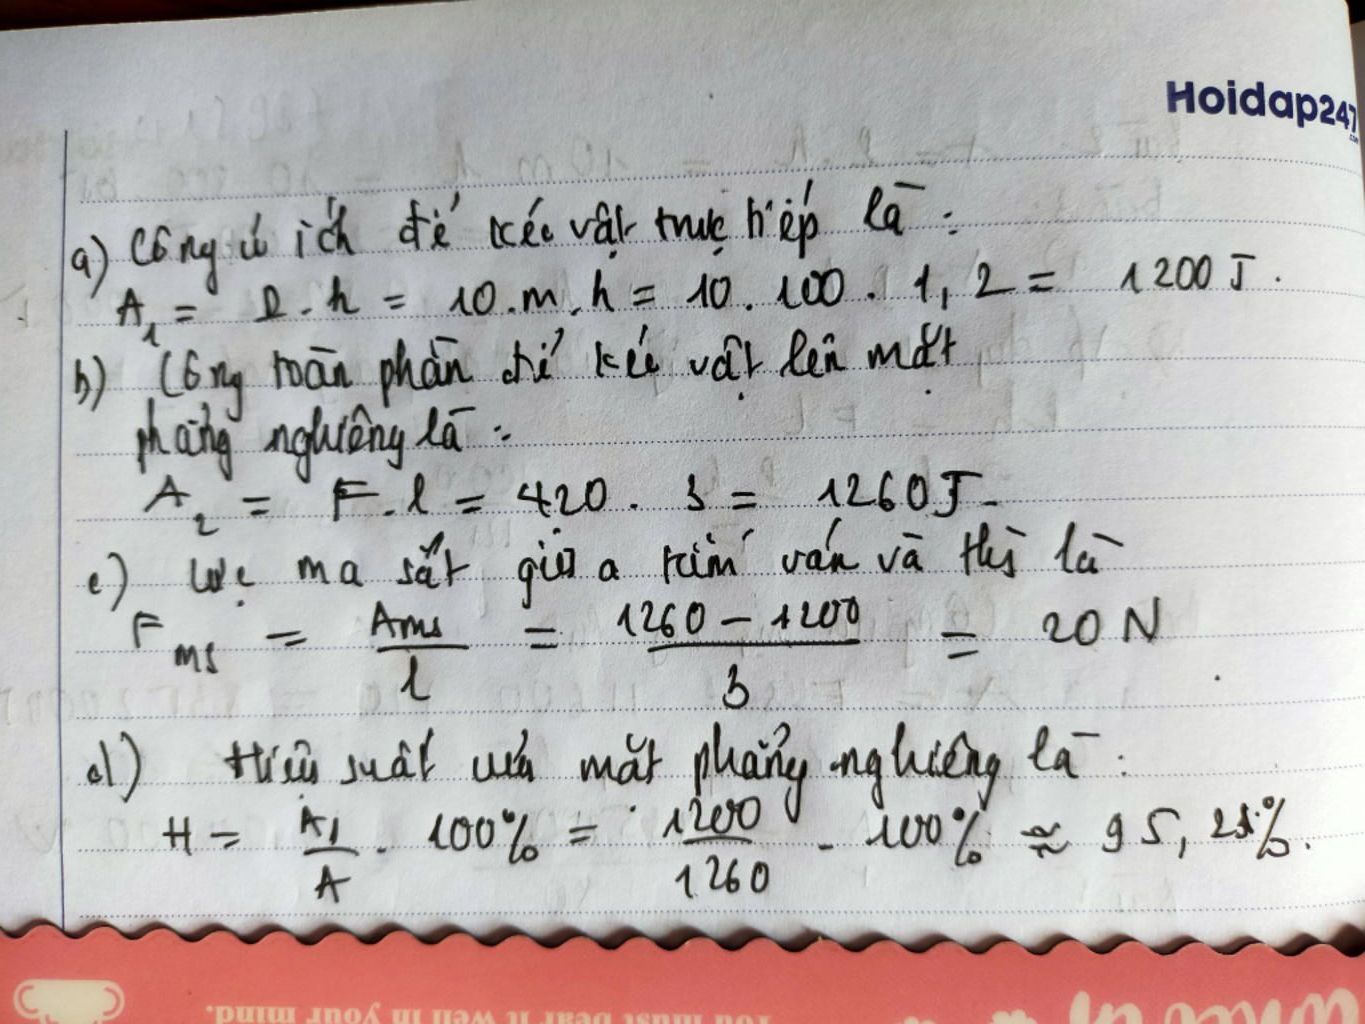 Hoidap247
.com
a) Công có ích để kéo vật trực tiếp là :
A₁ = P.h = 10.m.h = 10.100.1,2 = 1200 J.
b) Công toàn phần để kéo vật lên mặt
phẳng nghiêng là :
A₂ = F.l = 420.3 = 1260 J.
c) Lực ma sát giữa tấm ván và là
Fms = Ams / l = 1260 - 1200 / 3 = 20 N
d) Hiệu suất của mặt phẳng nghiêng là :
H = A₁ / A . 100% = 1200 / 1260 . 100% ≈ 95,25%.
You must bear it well in your mind.